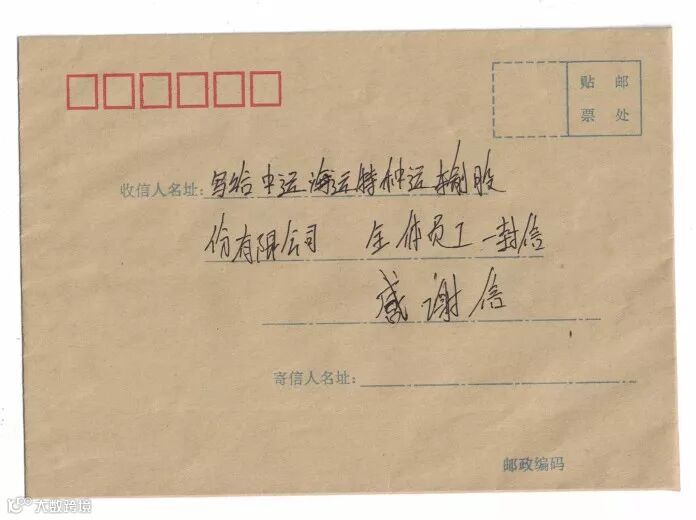 贴邮
票处
收信人名址:写给中远海运特种运输股
份有限公司 全体员工一封信
感谢信
寄信人名址:
邮政编码
大数跨境